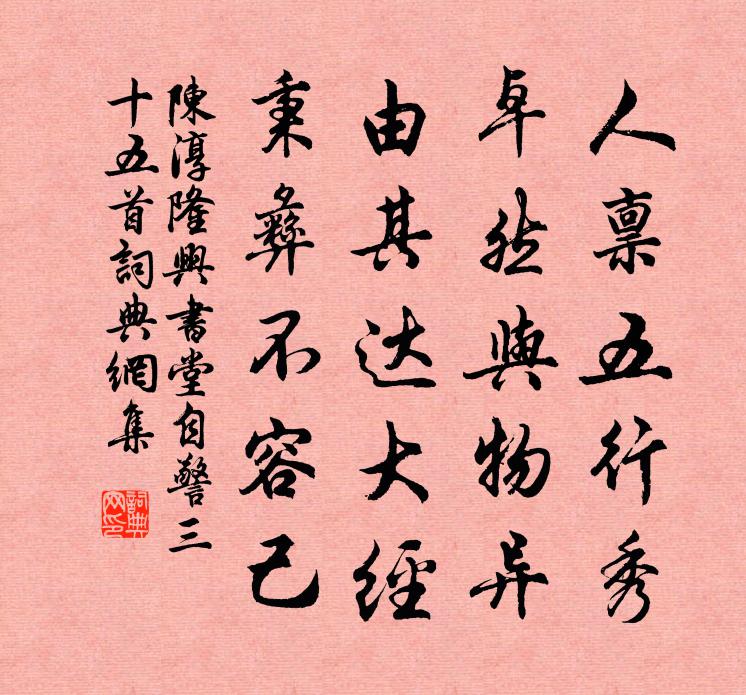 人禀五行秀
卓然與物异
由其达大經
秉彝不容已
陳淳隆興書堂自警三
十五首詞典網集
詞典网印